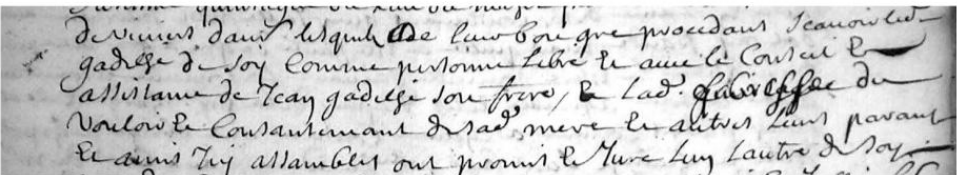 de viviers dans lesquels de leur bon gre procedant scavoir led
gadilhe de soy comme personne libre et avec le Conseil et
assistance de Jean gadilhe son frere, & lad. du
vouloir et Consantemant de sad mere et autres leurs parans
et amis icy assambles ont promis et Jure luy lautre de soy